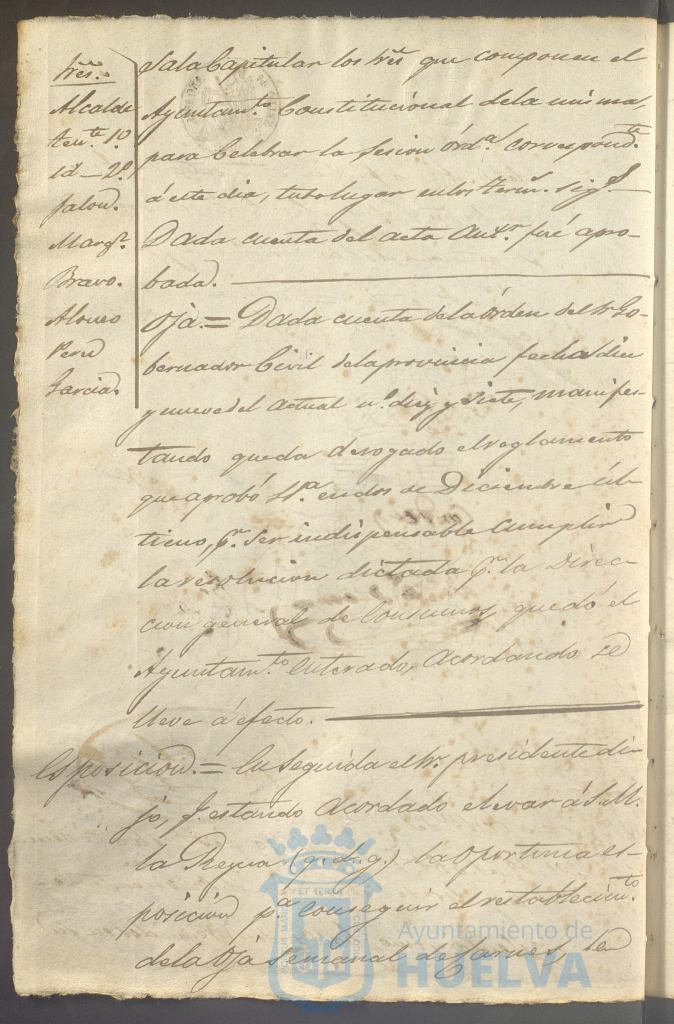 Sres.
Alcalde
ten.te 1.º
id – 2.º
Jalon.
Marq.z
Bravo.
Alonso
Peru
Garcia.
Sala Capitular los Sres que componen el
Ayuntam.to Constitucional de la misma,
para Celebrar la sesion órd.a correspond.te
á este dia, tubo lugar en los term.s sig.s
Dada cuenta del acta Ant.r fué apro-
bada.
Oja.= Dada cuenta de la órden del Sr Go-
bernador Civil de la provincia fecha diez
y nueve del actual n.º diez y siete, manifes-
tando queda derogado el reglamento
que aprobó S.S.a en dos de Diciembre úl-
timo, p.r ser indispensable cumplir
la resolucion dictada p.r la Direc-
cion general de Consumos, quedó el
Ayuntam.to enterado, acordando se
lleve á efecto.
Esposicion.= En seguida el Sr. presidente di-
jo, q. estando acordado elevar á S.M.
la Reyna (q. d. g.) la oportuna es-
posicion p.a conseguir el restablecim.to
de la Oja semanal de Carnes, le
Ayuntamiento de
HUELVA